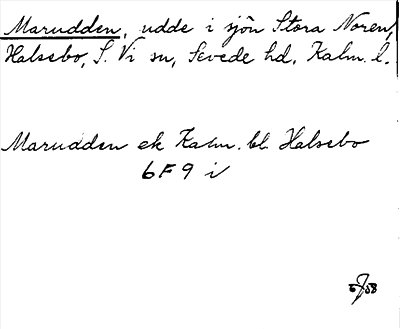 Marudden, udde i sjön Stora Noren,
Halsebo, S. Vi sn, Sevede hd, Kalm. l.
Marudden ek Kalm. bl. Halsebo
6F9 i